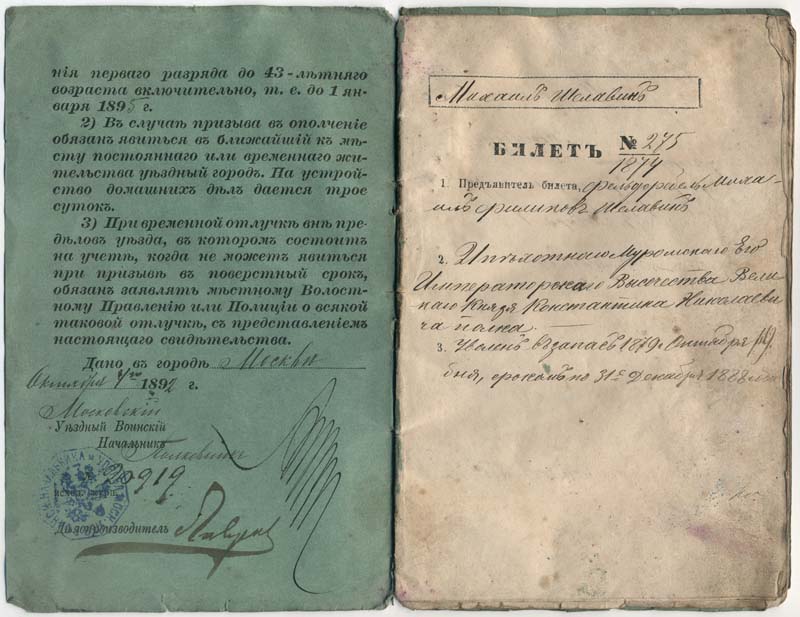 нія перваго разряда до 43-лѣтняго
возраста включительно, т. е. до 1 ян-
варя 1895 г.
2) Въ случаѣ призыва въ ополченіе
обязан явиться въ ближайшій къ мѣ-
сту постояннаго или временнаго жи-
тельства уѣздный город. На устрой-
ство домашнихъ дѣлъ дается трое
суток.
3) При временной отлучкѣ внѣ пре-
дѣлов уѣзда, в котором состоит
на учетѣ, когда не может явиться
при призывѣ в поверстный срок,
обязан заявлять мѣстному Волост-
ному Правленію или Полиціи о всякой
таковой отлучкѣ, съ представленіем
настоящаго свидѣтельства.
Дано въ городѣ Москвѣ
Октября 1892 г.
Московскій
Уѣздный Воинскій
Начальникъ
Полковникъ
10919
Дѣлопроизводитель
Михаилъ Шелавинъ
БИЛЕТЪ № 275
1874
1. Предъявитель билета, фельдфебель Миха-
илъ Филиповъ Шелавинъ
2. Муромскаго Его
Императорскаго Высочества Вели
каго Князя Константина Николаеви
ча полка.
3. Уволенъ в запасъ 1879 Октября
дня, срокомъ по 31е Декабря 1888